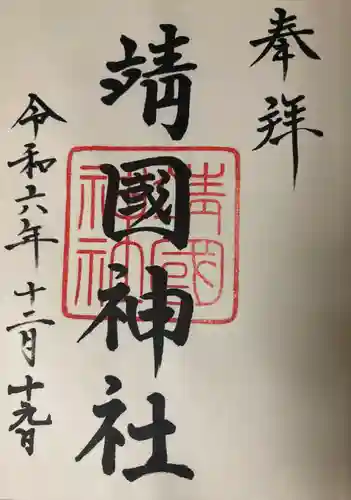 奉拝
靖國神社
令和六年十二月十九日
靖國
神社